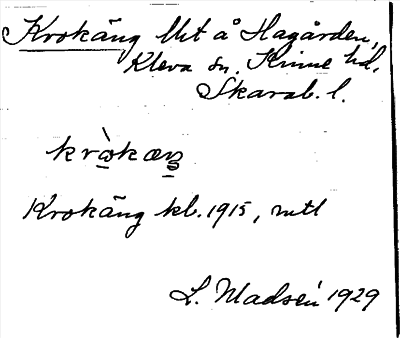 Krokäng Uet å Hagården,
Kleva sn. Kinne hd.
Skarab. l.
kròkæŋ
Krokäng kb. 1915, uttl
L. Madsén 1929